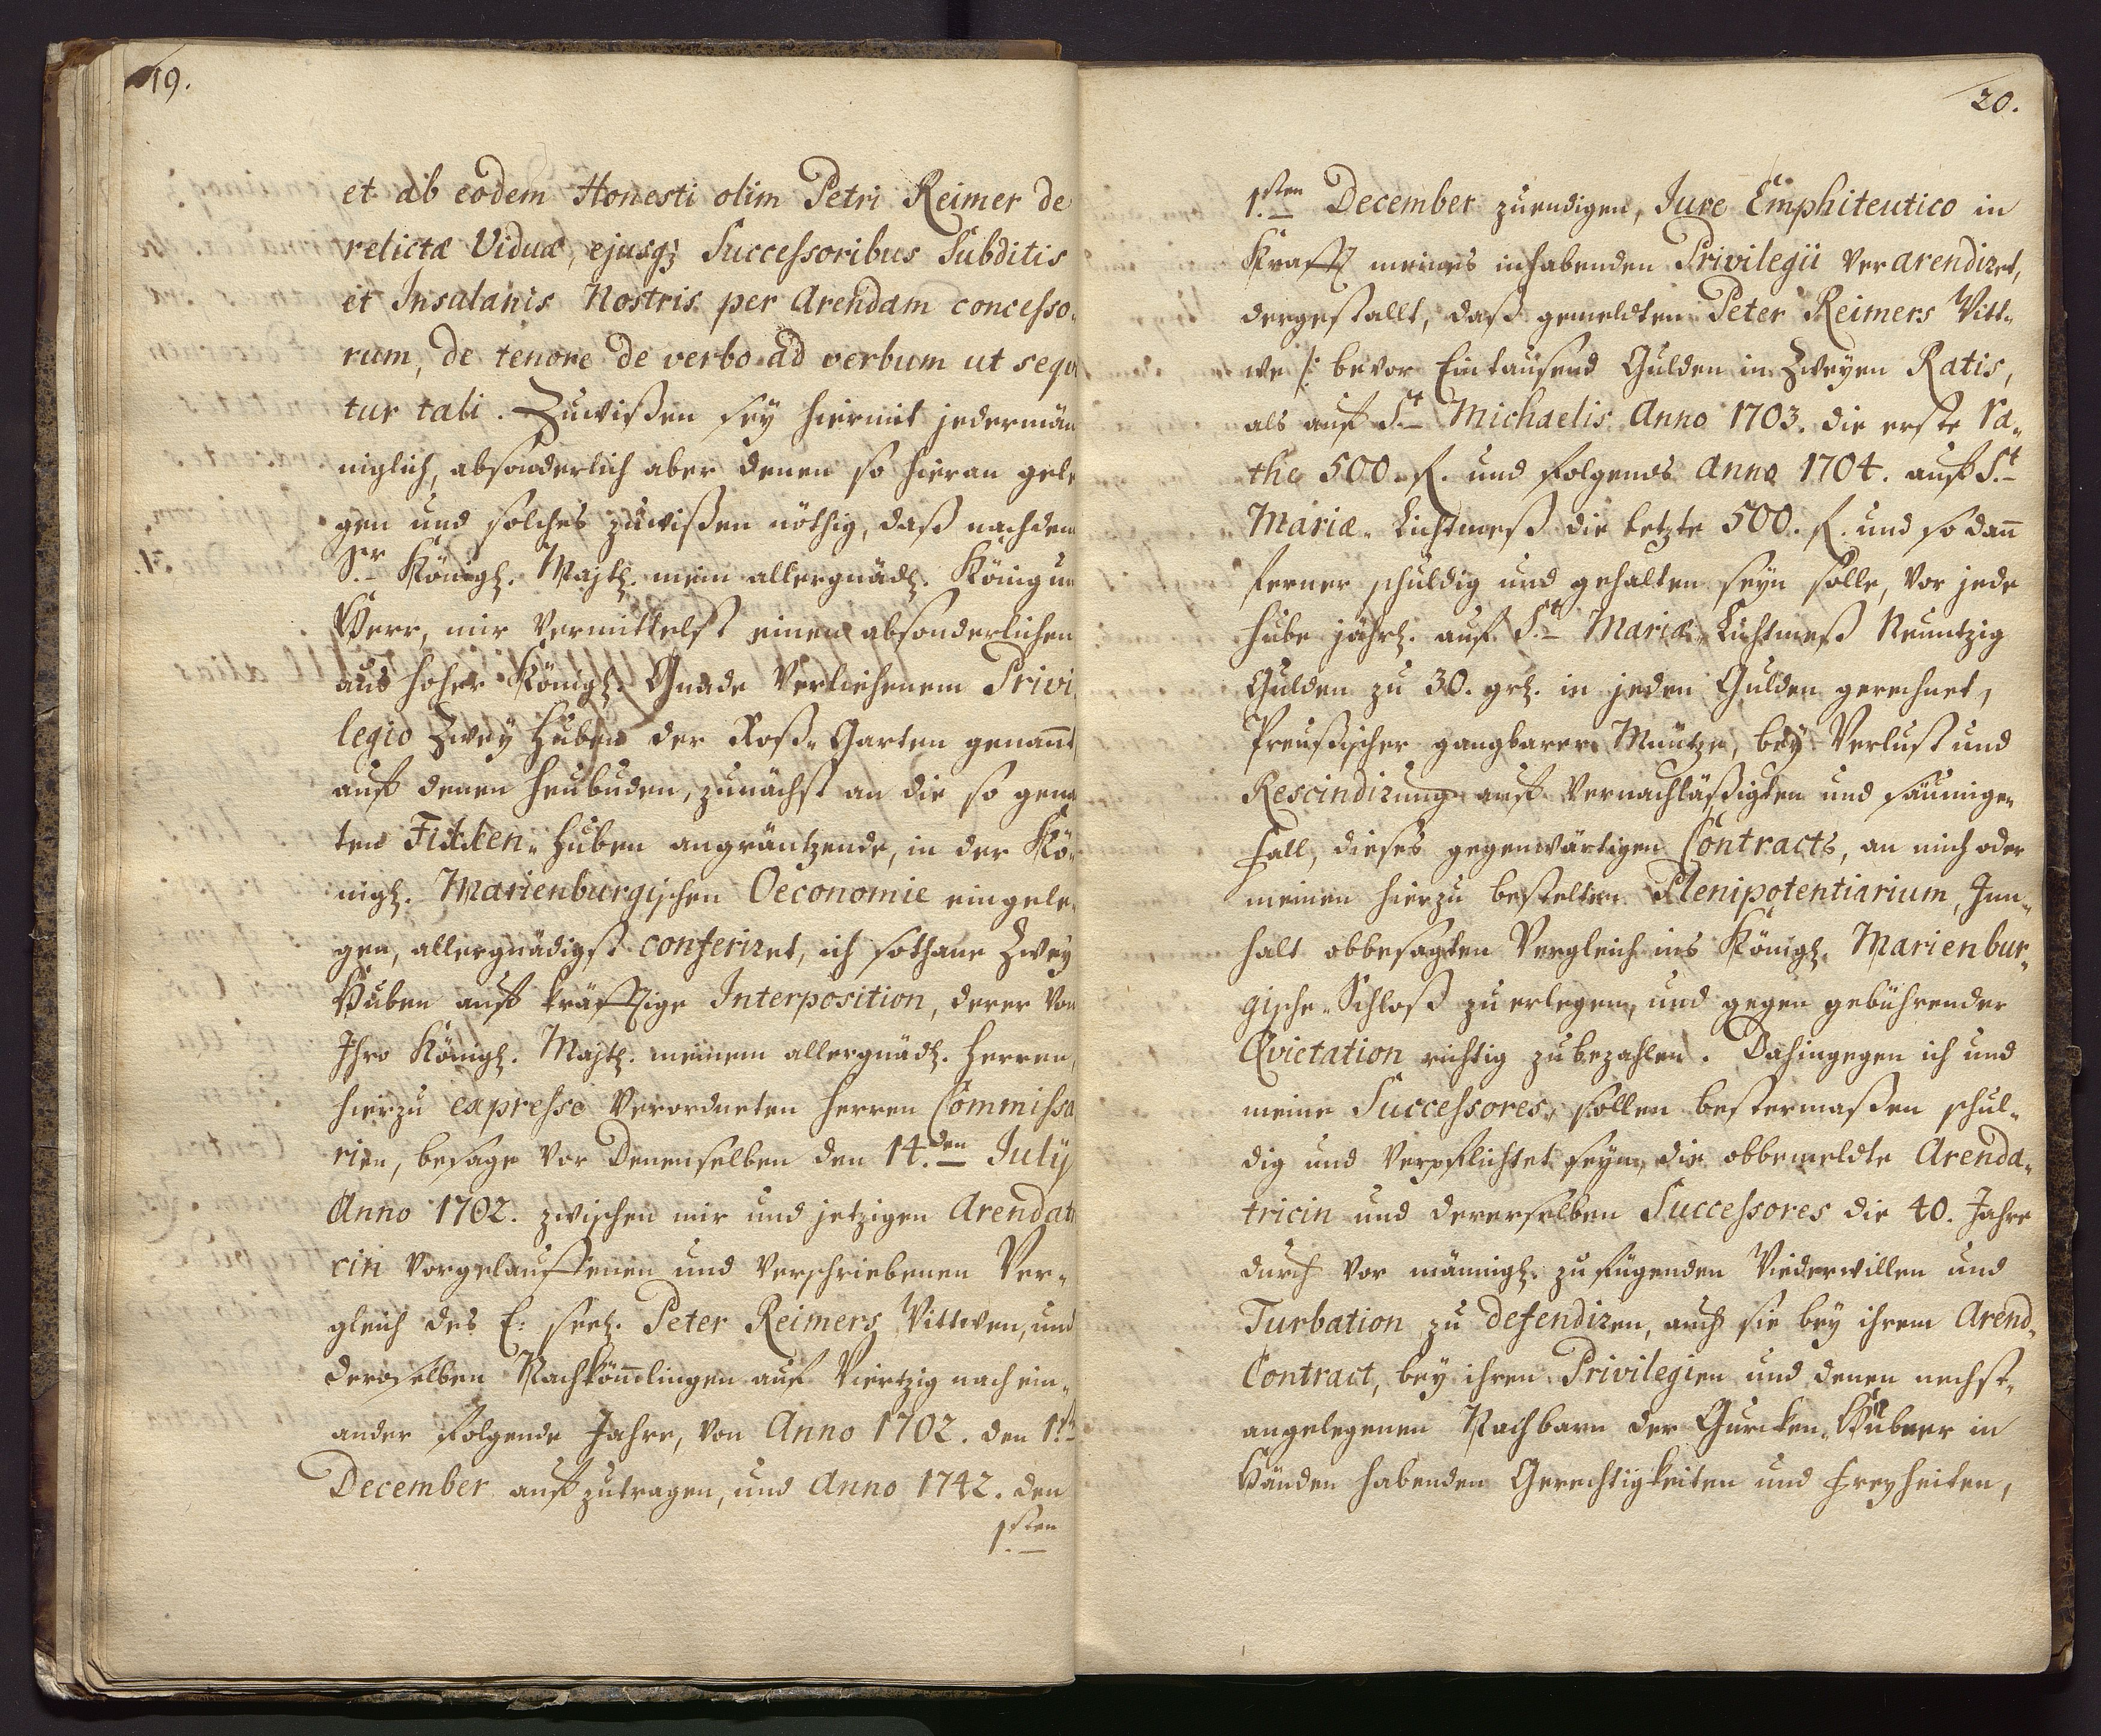 19.
et ab eodem Honesti olim Petri Reimer de
relictæ Viduæ, ejusq; Successoribus Subditis
et Insulanis Nostris per Arendam concesso„
rum, de tenore de verbo ad verbum ut sequi
tur tali. Zuwißen sey hiermit jedermän
niglich, absonderlich aber denen so hieran gele
gen und solches zuwißen nöthig, daß nachdem
Sr. Königl. Maytl. mein allergnädl. König un
Herr, mir vermittelst einem absonderlichen
aus hoher Königl. Gnade verliehenem Privi
legio Zwey Huben der Roß„Garten genannt
auff denen Heubuden, zunächst an die so gena
ten Fikken„Huben angräntzende, in der Kö„
nigl. Marienburgischen Oeconomie eingele„
gen, allergnädigst conferiret, ich sothane Zwey
Huben auff kräfftige Interposition, derer von
Ihro Königl. Maytl. meinem allergnädl. Herren,
hierzu expresse verordneten Herren Commissa
rien, besage vor Denenselben den 14.den July
Anno 1702. zwischen mir und jetzigen Arendatr
cin vorgelauffenen und verschriebenen Ver„
gleich des E: seel. Peter Reimers Wittwen, und
deroselben Nachkömlingen auf Viertzig nach ein„
ander folgende Jahre, von Anno 1702. den 1.st
December auff zutragen, und Anno 1742. den
1.sten
20.
1.sten December zuendigen, Jure Emphiteutico in
Krafft meines inhabenden Privilegii verarendiret,
dergestallt, daß gemeldten Peter Reimers Witt„
we /: bevor Eintausend Gulden in Zweyen Ratis,
als auf St Michaelis Anno 1703. die erste ra„
the 500. f. und folgends Anno 1704. auff St.
Mariæ„Lichtmeß die letzte 500. f. und so dann
ferner schuldig und gehalten seyn solle, vor jede
Hube jährl. auf St. Mariæ„Lichtmeß Neuntzig
Gulden zu 30. grl. in jeden Gulden gerechnet,
Preußischer gangbarer Müntze, bey Verlust und
Rescindirung auff vernachläßigten und säumigen
Fall, dieses gegenwärtigen Contracts, an mich oder
meinen hierzu bestelten Plenipotentiarium, Inn„
halt obbesagten Vergleich ins Königl. Marienbur„
gische„Schloß zuerlegen, und gegen gebührender
Qvictation richtig zubezahlen. Dahingegen ich und
meine Successores, sollen bestermaßen schul„
dig und verpflichtet seyn, die obbemeldte Arenda„
tricin und dererselben Successores die 40. Jahre
durch vor männigl. zufügenden Wiederwillen und
Turbation zu defendiren, auch sie bey ihrem Arend„
Contract, bey ihren Privilegien und denen nechst„
angelegenen Nachbarn der Gurcken„Hübner in
Händen habenden Gerechtigkeiten und Freyheiten,